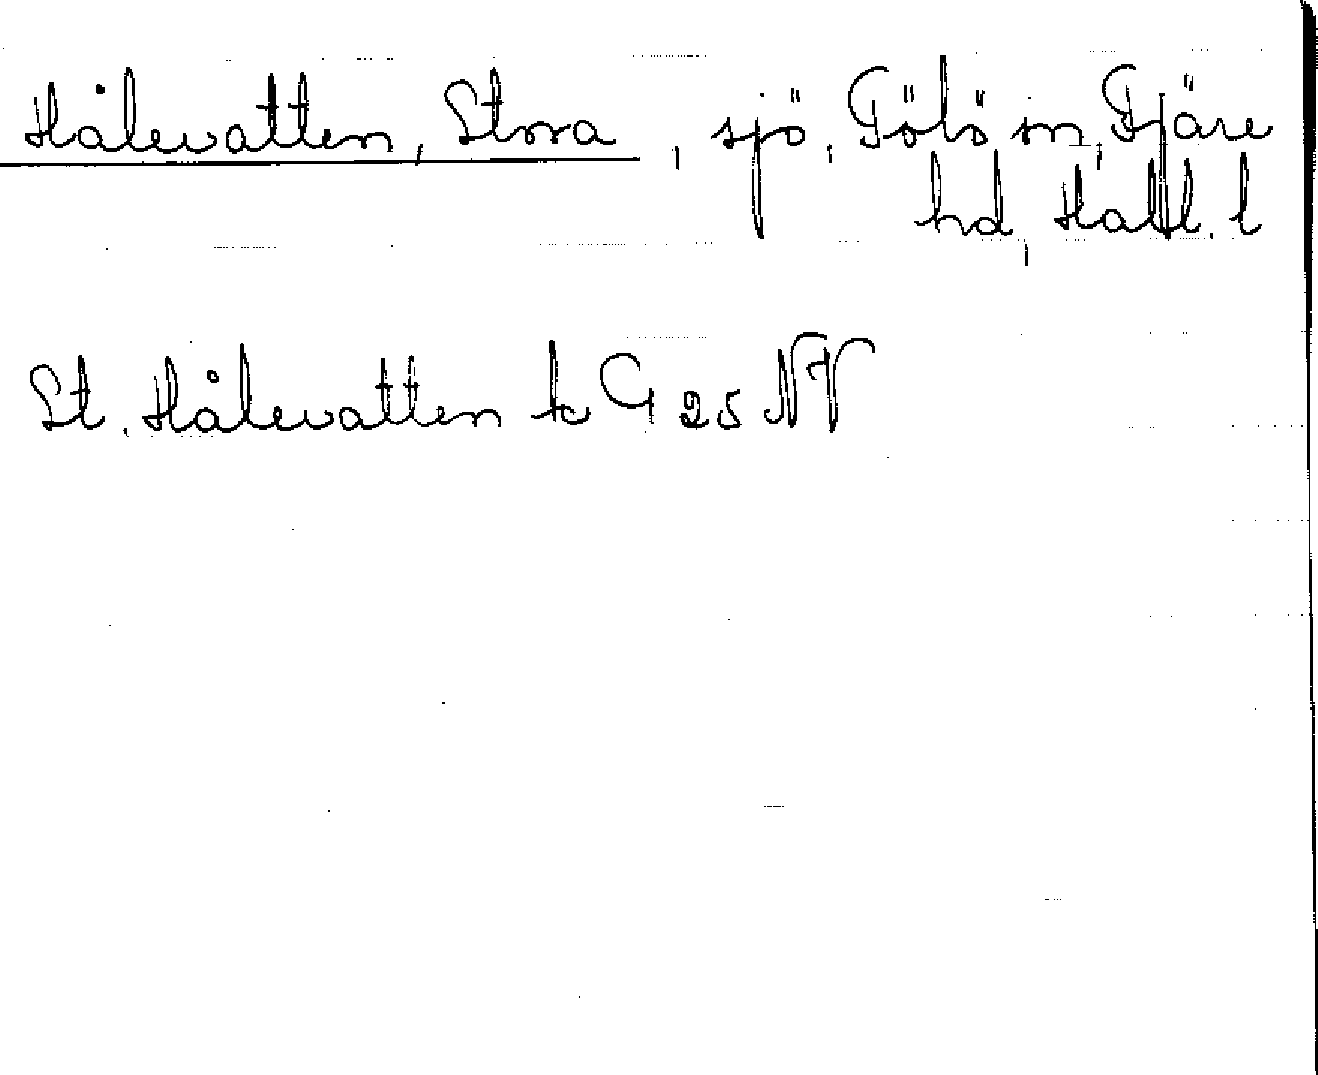 Hålevatten, Stora, sjö, Tölö sn, Fjäre
hd, Hall. l
St. Hålevatten tc G 25 NV